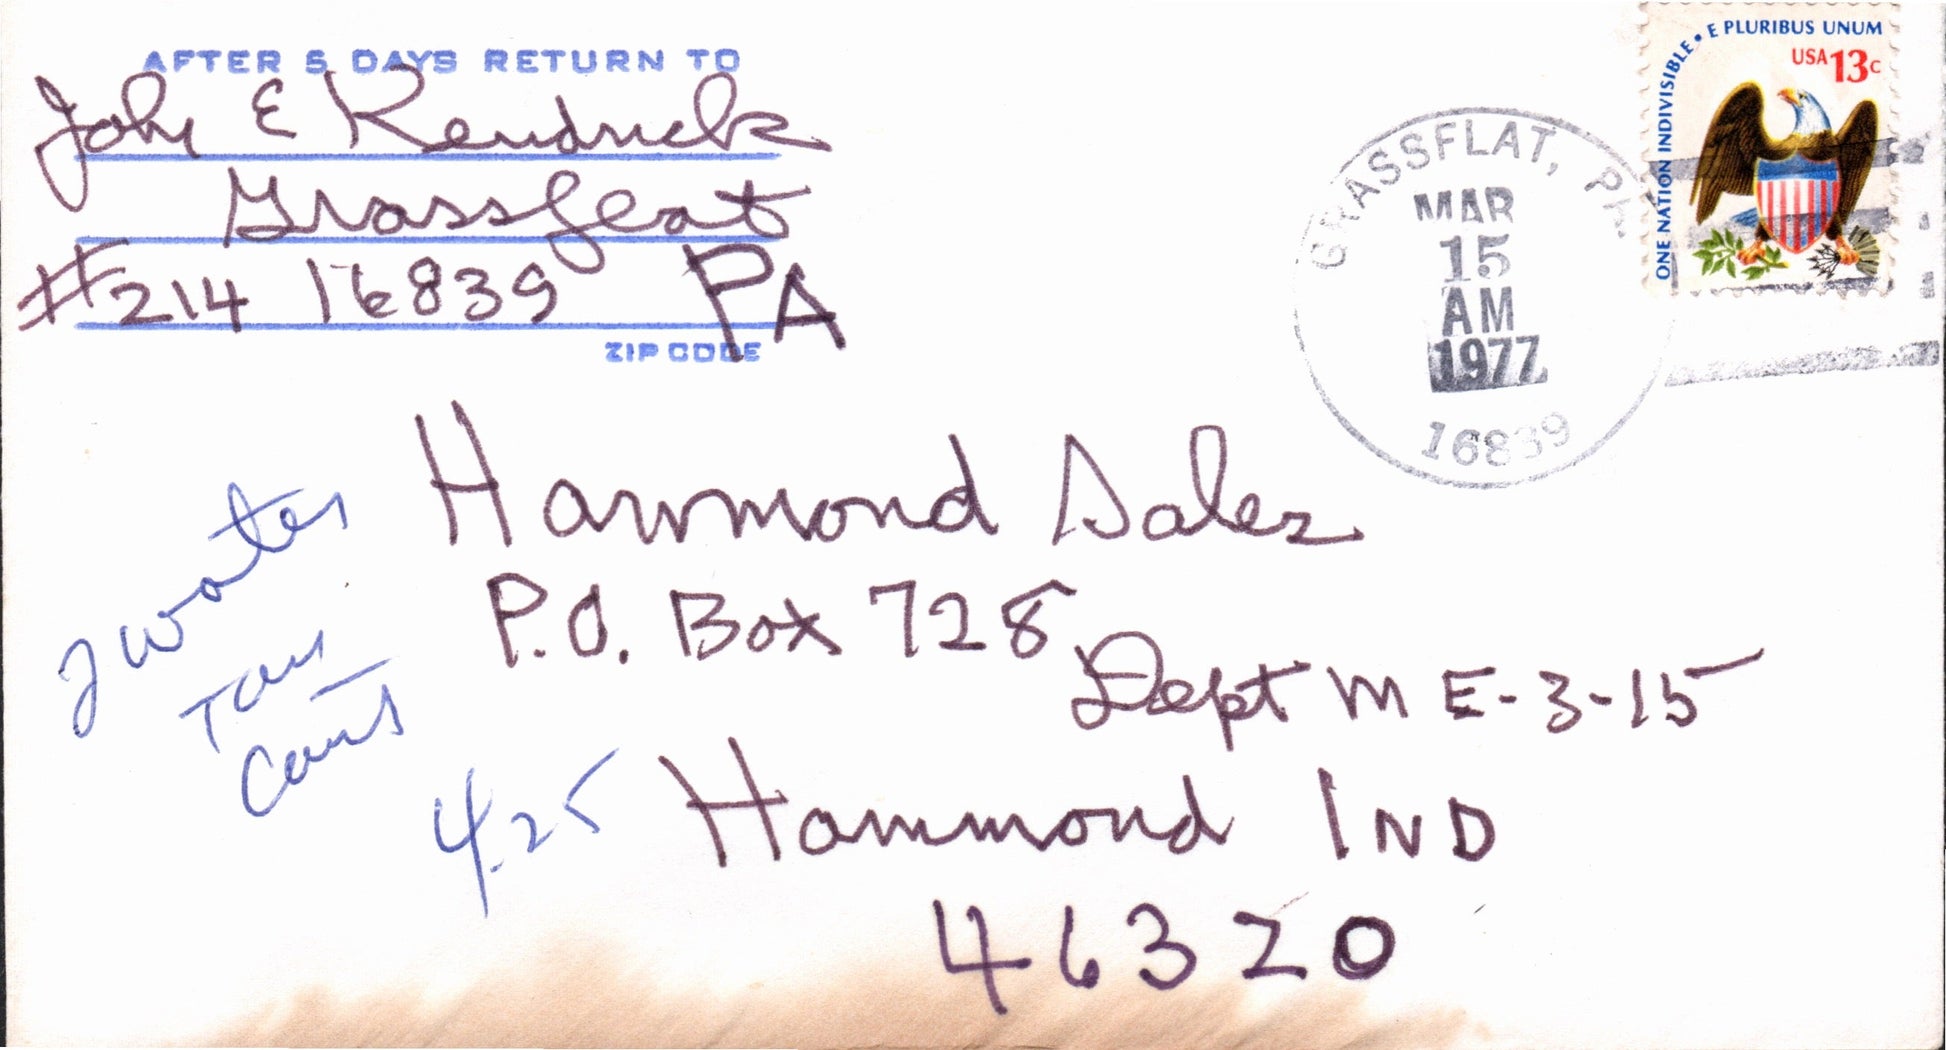 AFTER 5 DAYS RETURN TO
John E Kendrick
Grassflat
#214 16839 PA
ZIP CODE
GRASSFLAT, PA.
MAR
15
AM
1977
16839
E PLURIBUS UNUM
USA 13c
ONE NATION INDIVISIBLE
Hammond Sales
P.O. Box 728
Dept M E-3-15
Hammond IND
46320
2 
4.25